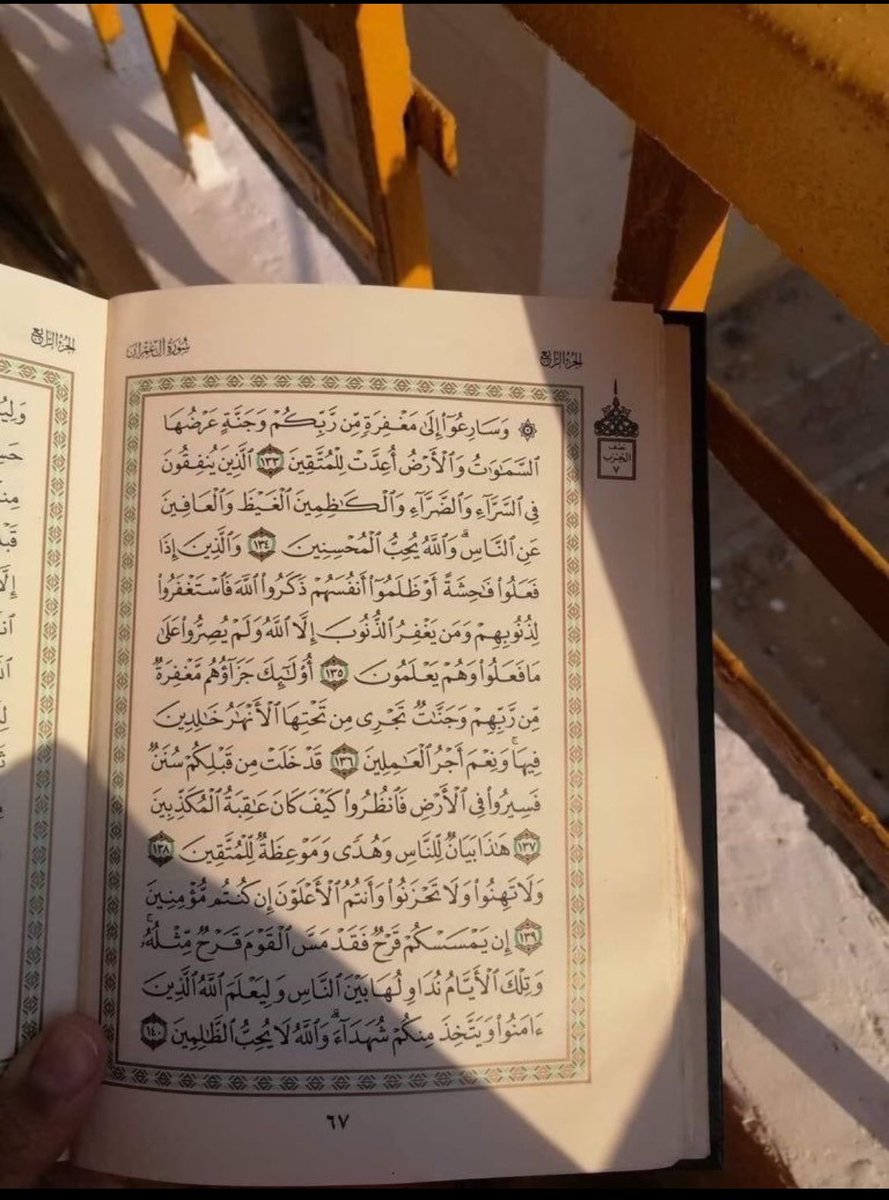 الجزء الرابع
سورة آل عمران
الجزء الرابع
نصف
الحزب
٧
۞ وَسَارِعُوٓا۟ إِلَىٰ مَغْفِرَةٍ مِّن رَّبِّكُمْ وَجَنَّةٍ عَرْضُهَا
ٱلسَّمَٰوَٰتُ وَٱلْأَرْضُ أُعِدَّتْ لِلْمُتَّقِينَ ١٣٣ ٱلَّذِينَ يُنفِقُونَ
فِى ٱلسَّرَّآءِ وَٱلضَّرَّآءِ وَٱلْكَٰظِمِينَ ٱلْغَيْظَ وَٱلْعَافِينَ
عَنِ ٱلنَّاسِ ۗ وَٱللَّهُ يُحِبُّ ٱلْمُحْسِنِينَ ١٣٤ وَٱلَّذِينَ إِذَا
فَعَلُوا۟ فَٰحِشَةً أَوْ ظَلَمُوٓا۟ أَنفُسَهُمْ ذَكَرُوا۟ ٱللَّهَ فَٱسْتَغْفَرُوا۟
لِذُنُوبِهِمْ وَمَن يَغْفِرُ ٱلذُّنُوبَ إِلَّا ٱللَّهُ وَلَمْ يُصِرُّوا۟ عَلَىٰ
مَا فَعَلُوا۟ وَهُمْ يَعْلَمُونَ ١٣٥ أُو۟لَٰٓئِكَ جَزَآؤُهُم مَّغْفِرَةٌ
مِّن رَّبِّهِمْ وَجَنَّٰتٌ تَجْرِى مِن تَحْتِهَا ٱلْأَنْهَٰرُ خَٰلِدِينَ
فِيهَا ۚ وَنِعْمَ أَجْرُ ٱلْعَٰمِلِينَ ١٣٦ قَدْ خَلَتْ مِن قَبْلِكُمْ سُنَنٌ
فَسِيرُوا۟ فِى ٱلْأَرْضِ فَٱنظُرُوا۟ كَيْفَ كَانَ عَٰقِبَةُ ٱلْمُكَذِّبِينَ
١٣٧ هَٰذَا بَيَانٌ لِّلنَّاسِ وَهُدًى وَمَوْعِظَةٌ لِّلْمُتَّقِينَ ١٣٨
وَلَا تَهِنُوا۟ وَلَا تَحْزَنُوا۟ وَأَنتُمُ ٱلْأَعْلَوْنَ إِن كُنتُم مُّؤْمِنِينَ
١٣٩ إِن يَمْسَسْكُمْ قَرْحٌ فَقَدْ مَسَّ ٱلْقَوْمَ قَرْحٌ مِّثْلُهُۥ ۚ
وَتِلْكَ ٱلْأَيَّامُ نُدَاوِلُهَا بَيْنَ ٱلنَّاسِ وَلِيَعْلَمَ ٱللَّهُ ٱلَّذِينَ
ءَامَنُوا۟ وَيَتَّخِذَ مِنكُمْ شُهَدَآءَ ۗ وَٱللَّهُ لَا يُحِبُّ ٱلظَّٰلِمِينَ ١٤٠
٦٧